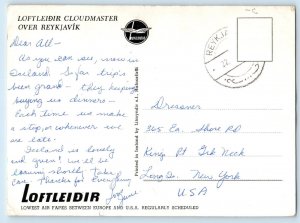 LOFTLEIDIR CLOUDMASTER
OVER REYKJAVÍK
Dear All —
As you can see, now in
Iceland. So far trip's
been grand — they keep
buying us dinners —
Each time we make
a stop, or whenever we
are late.
Iceland is lovely
and green! We'll be
coming shortly. Take
care. Thanks for every
LOFTLEIDIR
LOWEST AIR FARES BETWEEN EUROPE AND U.S.A. REGULARLY SCHEDULED
Printed in Iceland by
REYKJA
Dressner
365 Ea. Shore Rd
Kings Pt Grt Neck
Long Is. New York
USA